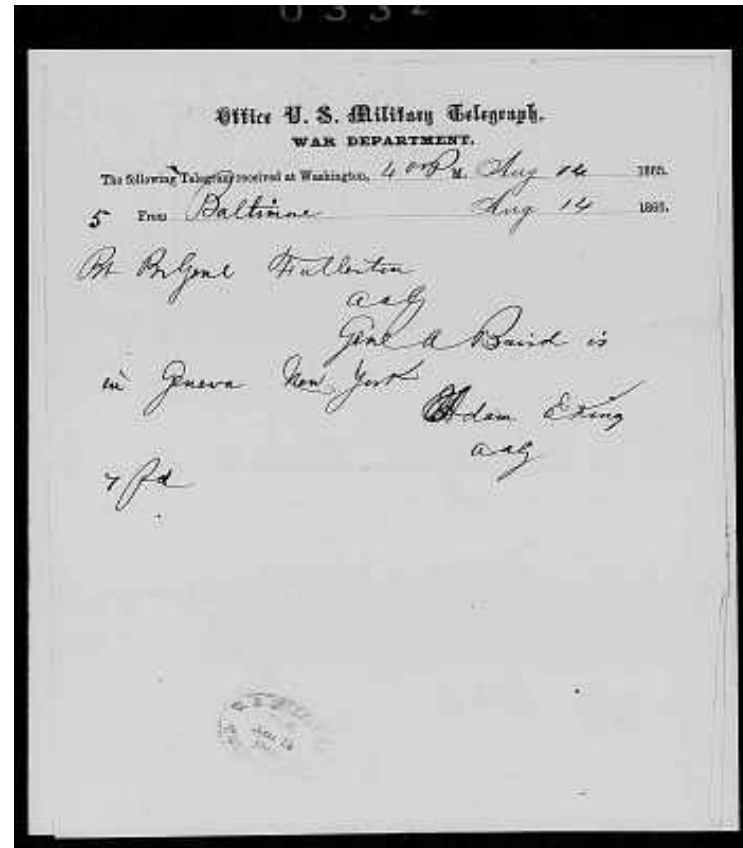 Office U. S. Military Telegraph,
WAR DEPARTMENT.
The following Telegram received at Washington, 4 00 P M. Aug 14 1865.
5 From Baltimore Aug 14 1865.
Bt Br Genl Fullerton
aag
Genl A Baird is
in Geneva New York
Adam
aag
7 Pd